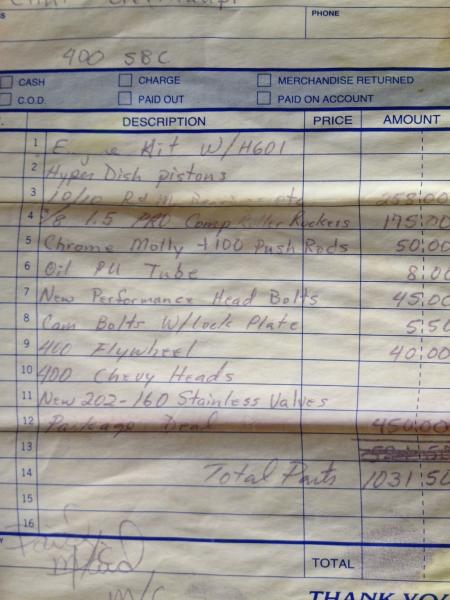 PHONE
400 SBC
CASH CHARGE MERCHANDISE RETURNED
C.O.D. PAID OUT PAID ON ACCOUNT
DESCRIPTION PRICE AMOUNT
1 Engine Kit W/H601
2 Hyper Dish pistons
3 10/10 Rd M Bearings etc 258.00
4 3/8 1.5 PRO Comp Roller Rockers 175.00
5 Chrome Molly +100 Push Rods 50.00
6 Oil PU Tube 8.00
7 New Performance Head Bolts 45.00
8 Cam Bolts W/Lock Plate 5.50
9 400 Flywheel 40.00
10 400 Chevy Heads
11 New 202-160 Stainless Valves
12 Package Deal 450.00
13
14 Total Parts 1031.50
15
16
Paid
TOTAL
M/C
THANK YOU